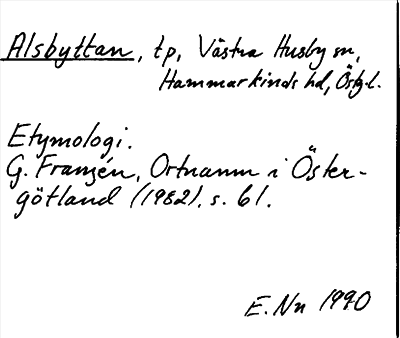 Alsbyttan, tp, Västra Husby sn,
Hammarkinds hd, Östg.l.
Etymologi.
G. Franzén, Ortnamn i Öster-
götland (1982). s. 61.
E. Nn 1990